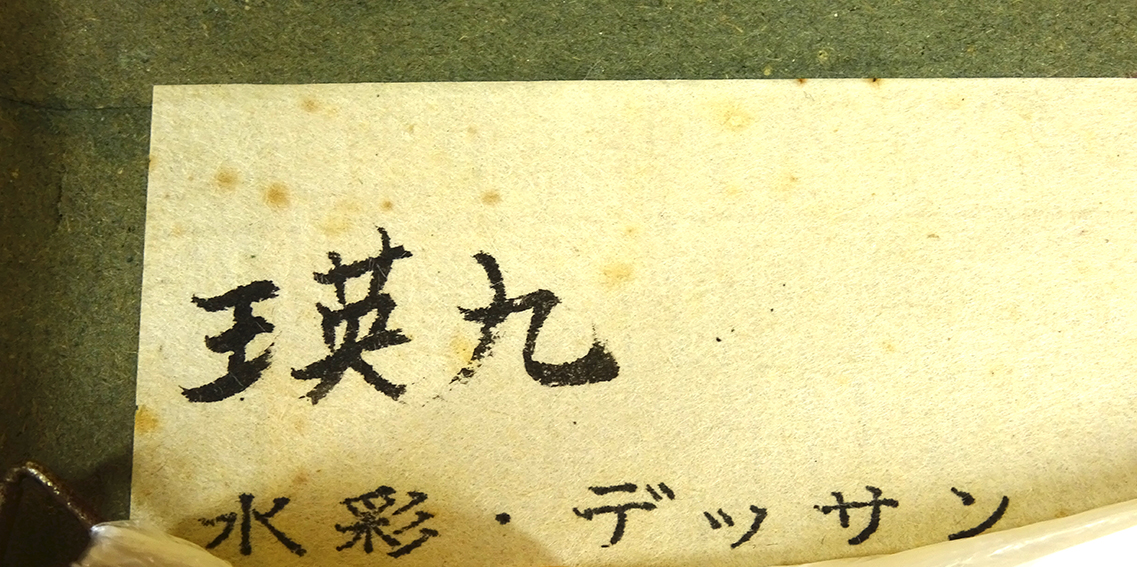 瑛九
水彩・デッサン